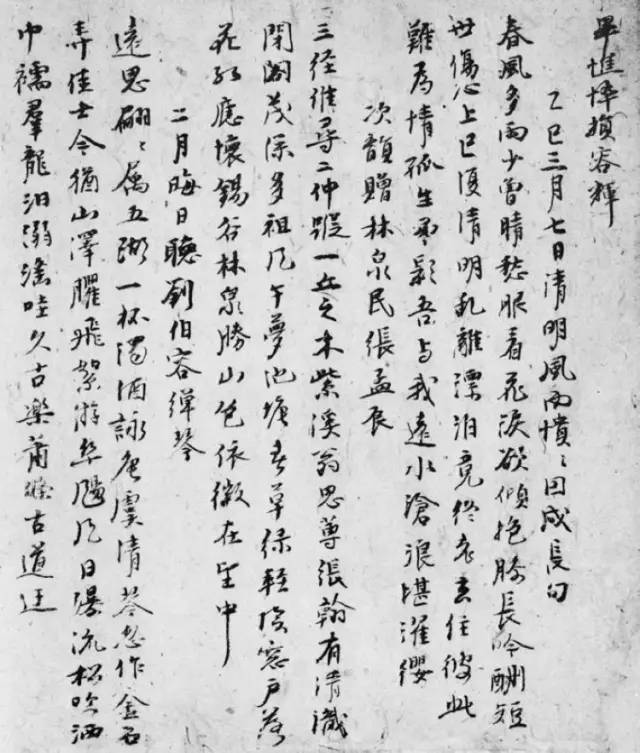 畢憔悴損容輝
乙巳三月七日清明風雨憒〻因成長句
春風多雨少曾晴愁眼看花淚欲傾抱膝長吟酬短
世傷心上巳復清明亂離漂泊竟終老去住彼此
難為情孤生弔影吾與我遠水滄浪堪濯纓
次韻贈林泉民張孟辰
三徑誰尋二仲蹤一丘之木紫溪翁思蓴張翰有清識
閉閣茂深多祖風午夢池塘春草綠輕陰窓戶落
花紅應懷錫谷林泉勝山色依微在望中
二月晦日聽劉伯容彈琴
遠思翩〻屬五湖一杯濁酒詠唐虞清琴忽作金石
弄佳士今猶山澤臞飛絮游絲颺風日瀑流松吹洒
巾襦羣龍汩溺滛哇久古樂蕭條古道迂